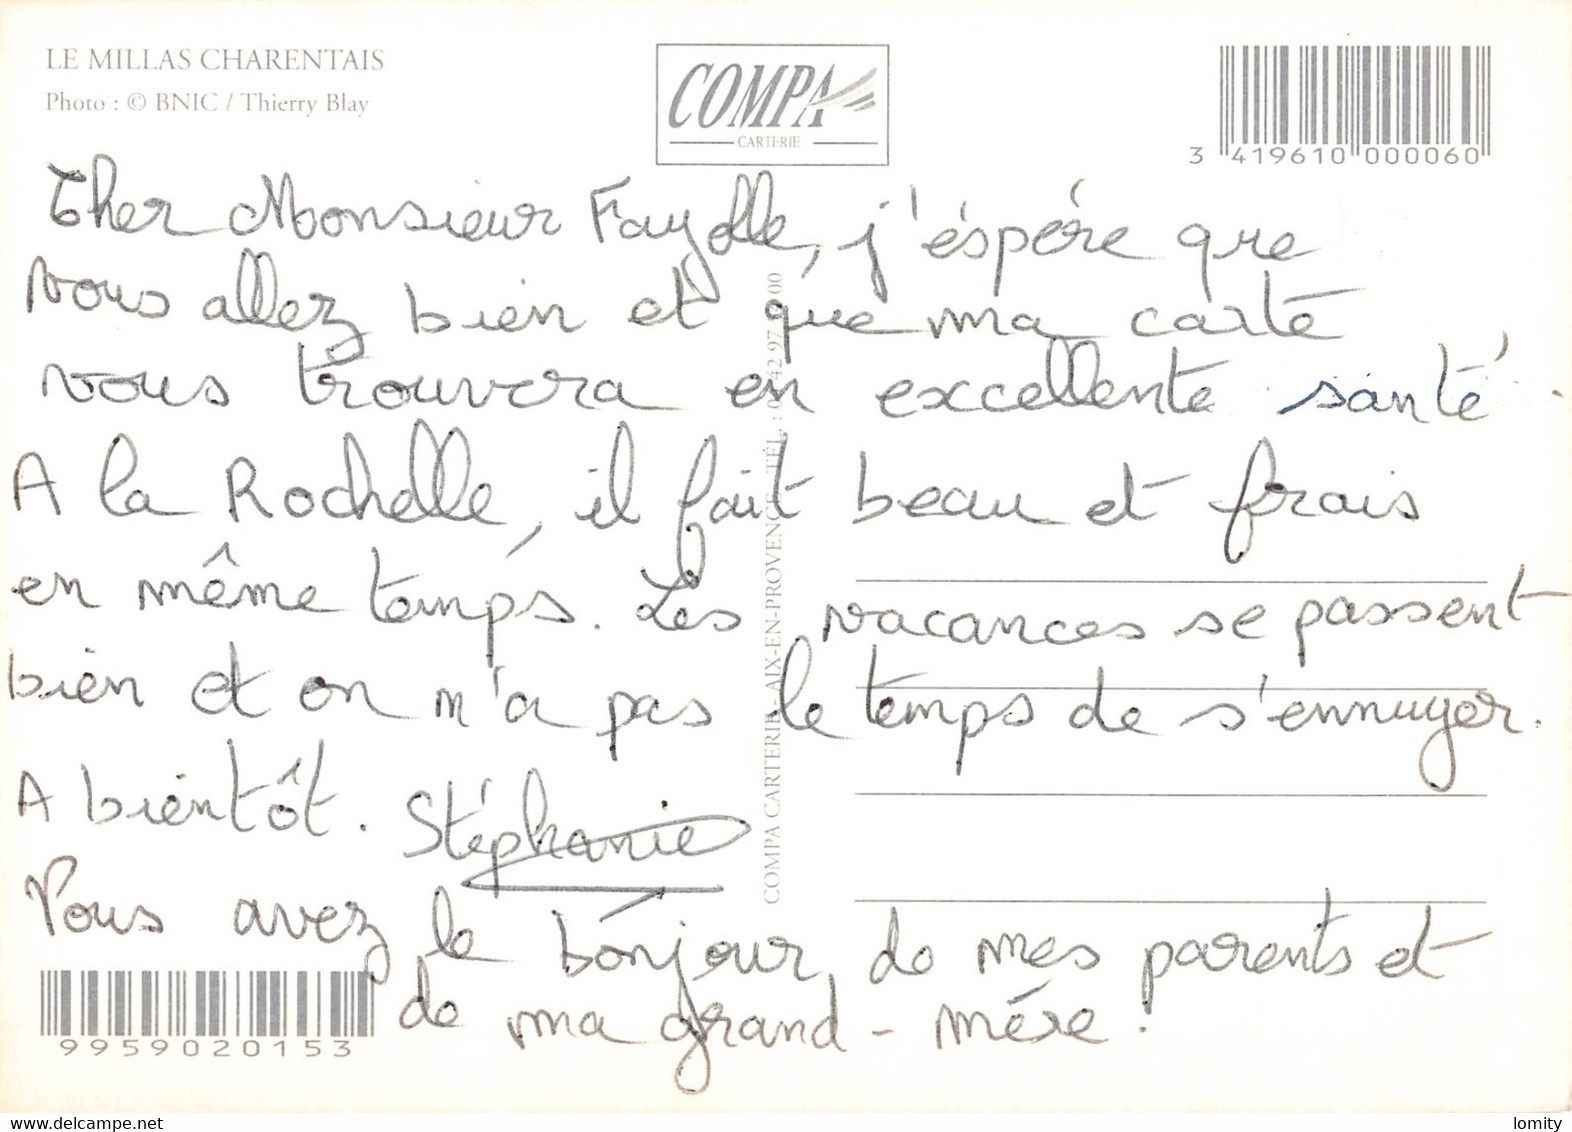 LE MILLAS CHARENTAIS
Photo : © BNIC / Thierry Blay
COMPA
CARTERIE
3 419610 000060
Cher Monsieur Fayolle, j'éspére que
vous allez bien et que ma carte
vous trouvera en excellente santé.
A la Rochelle, il fait beau et frais
en même temps. Les vacances se passent
bien et on n'a pas le temps de s'ennuyer.
A bientôt. Stéphanie
Vous avez le bonjour de mes parents et
de ma grand-mére.
COMPA CARTERIE - AIX-EN-PROVENCE - TÉL. :
9959020153
lomity